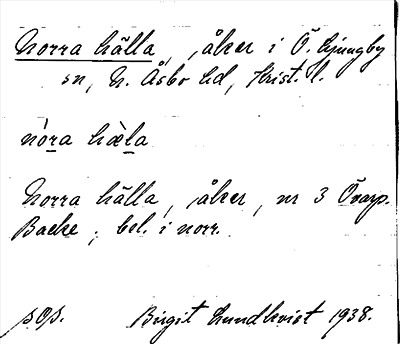 Norra hälla, åker i Ö. Ljungby
sn, N. Åsbo hd, Krist. l.
nòra hæ̀la
Norra hälla, åker, nr 3 Övarp.
Backe; bel. i norr.
sOp. Birgit Lundkvist 1938.